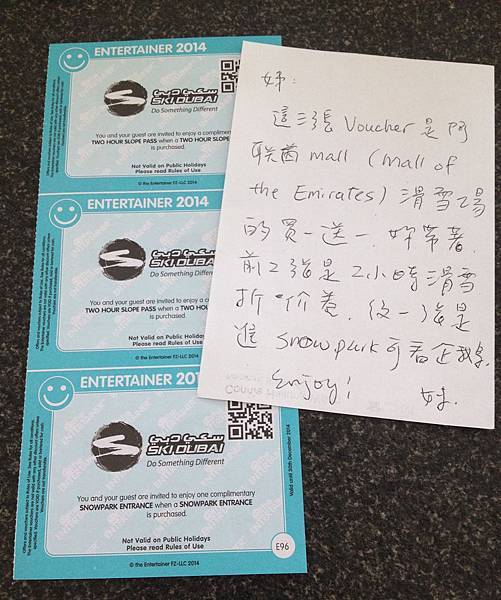 ENTERTAINER 2014
سكي دبي
SKI DUBAI
Do Something Different
You and your guest are invited to enjoy a complimentary
TWO HOUR SLOPE PASS when a TWO HOUR SLOPE
is purchased.
Not Valid on Public Holidays
Please read Rules of Use
© the Entertainer FZ-LLC 2014
ENTERTAINER 2014
سكي دبي
SKI DUBAI
Do Something Different
You and your guest are invited to enjoy a
TWO HOUR SLOPE PASS when a TWO HO
is purchased.
Not Valid on Public Holidays
Please read Rules of Use
© the Entertainer FZ-LLC 2014
ENTERTAINER 201
سكي دبي
SKI DUBAI
Do Something Different
You and your guest are invited to enjoy one complimentary
SNOWPARK ENTRANCE when a SNOWPARK ENTRANCE
is purchased.
Not Valid on Public Holidays
Please read Rules of Use
E96
© the Entertainer FZ-LLC 2014
Valid until 30th December 2014
姊:
這三張 Voucher 是阿
联酋 mall (Mall of
the Emirates) 滑雪場
的買一送一. 妳帶著.
前2張是2小時滑雪
折價券. 後一張是
進 snow park 可看企鵝.
Enjoy!
妹.